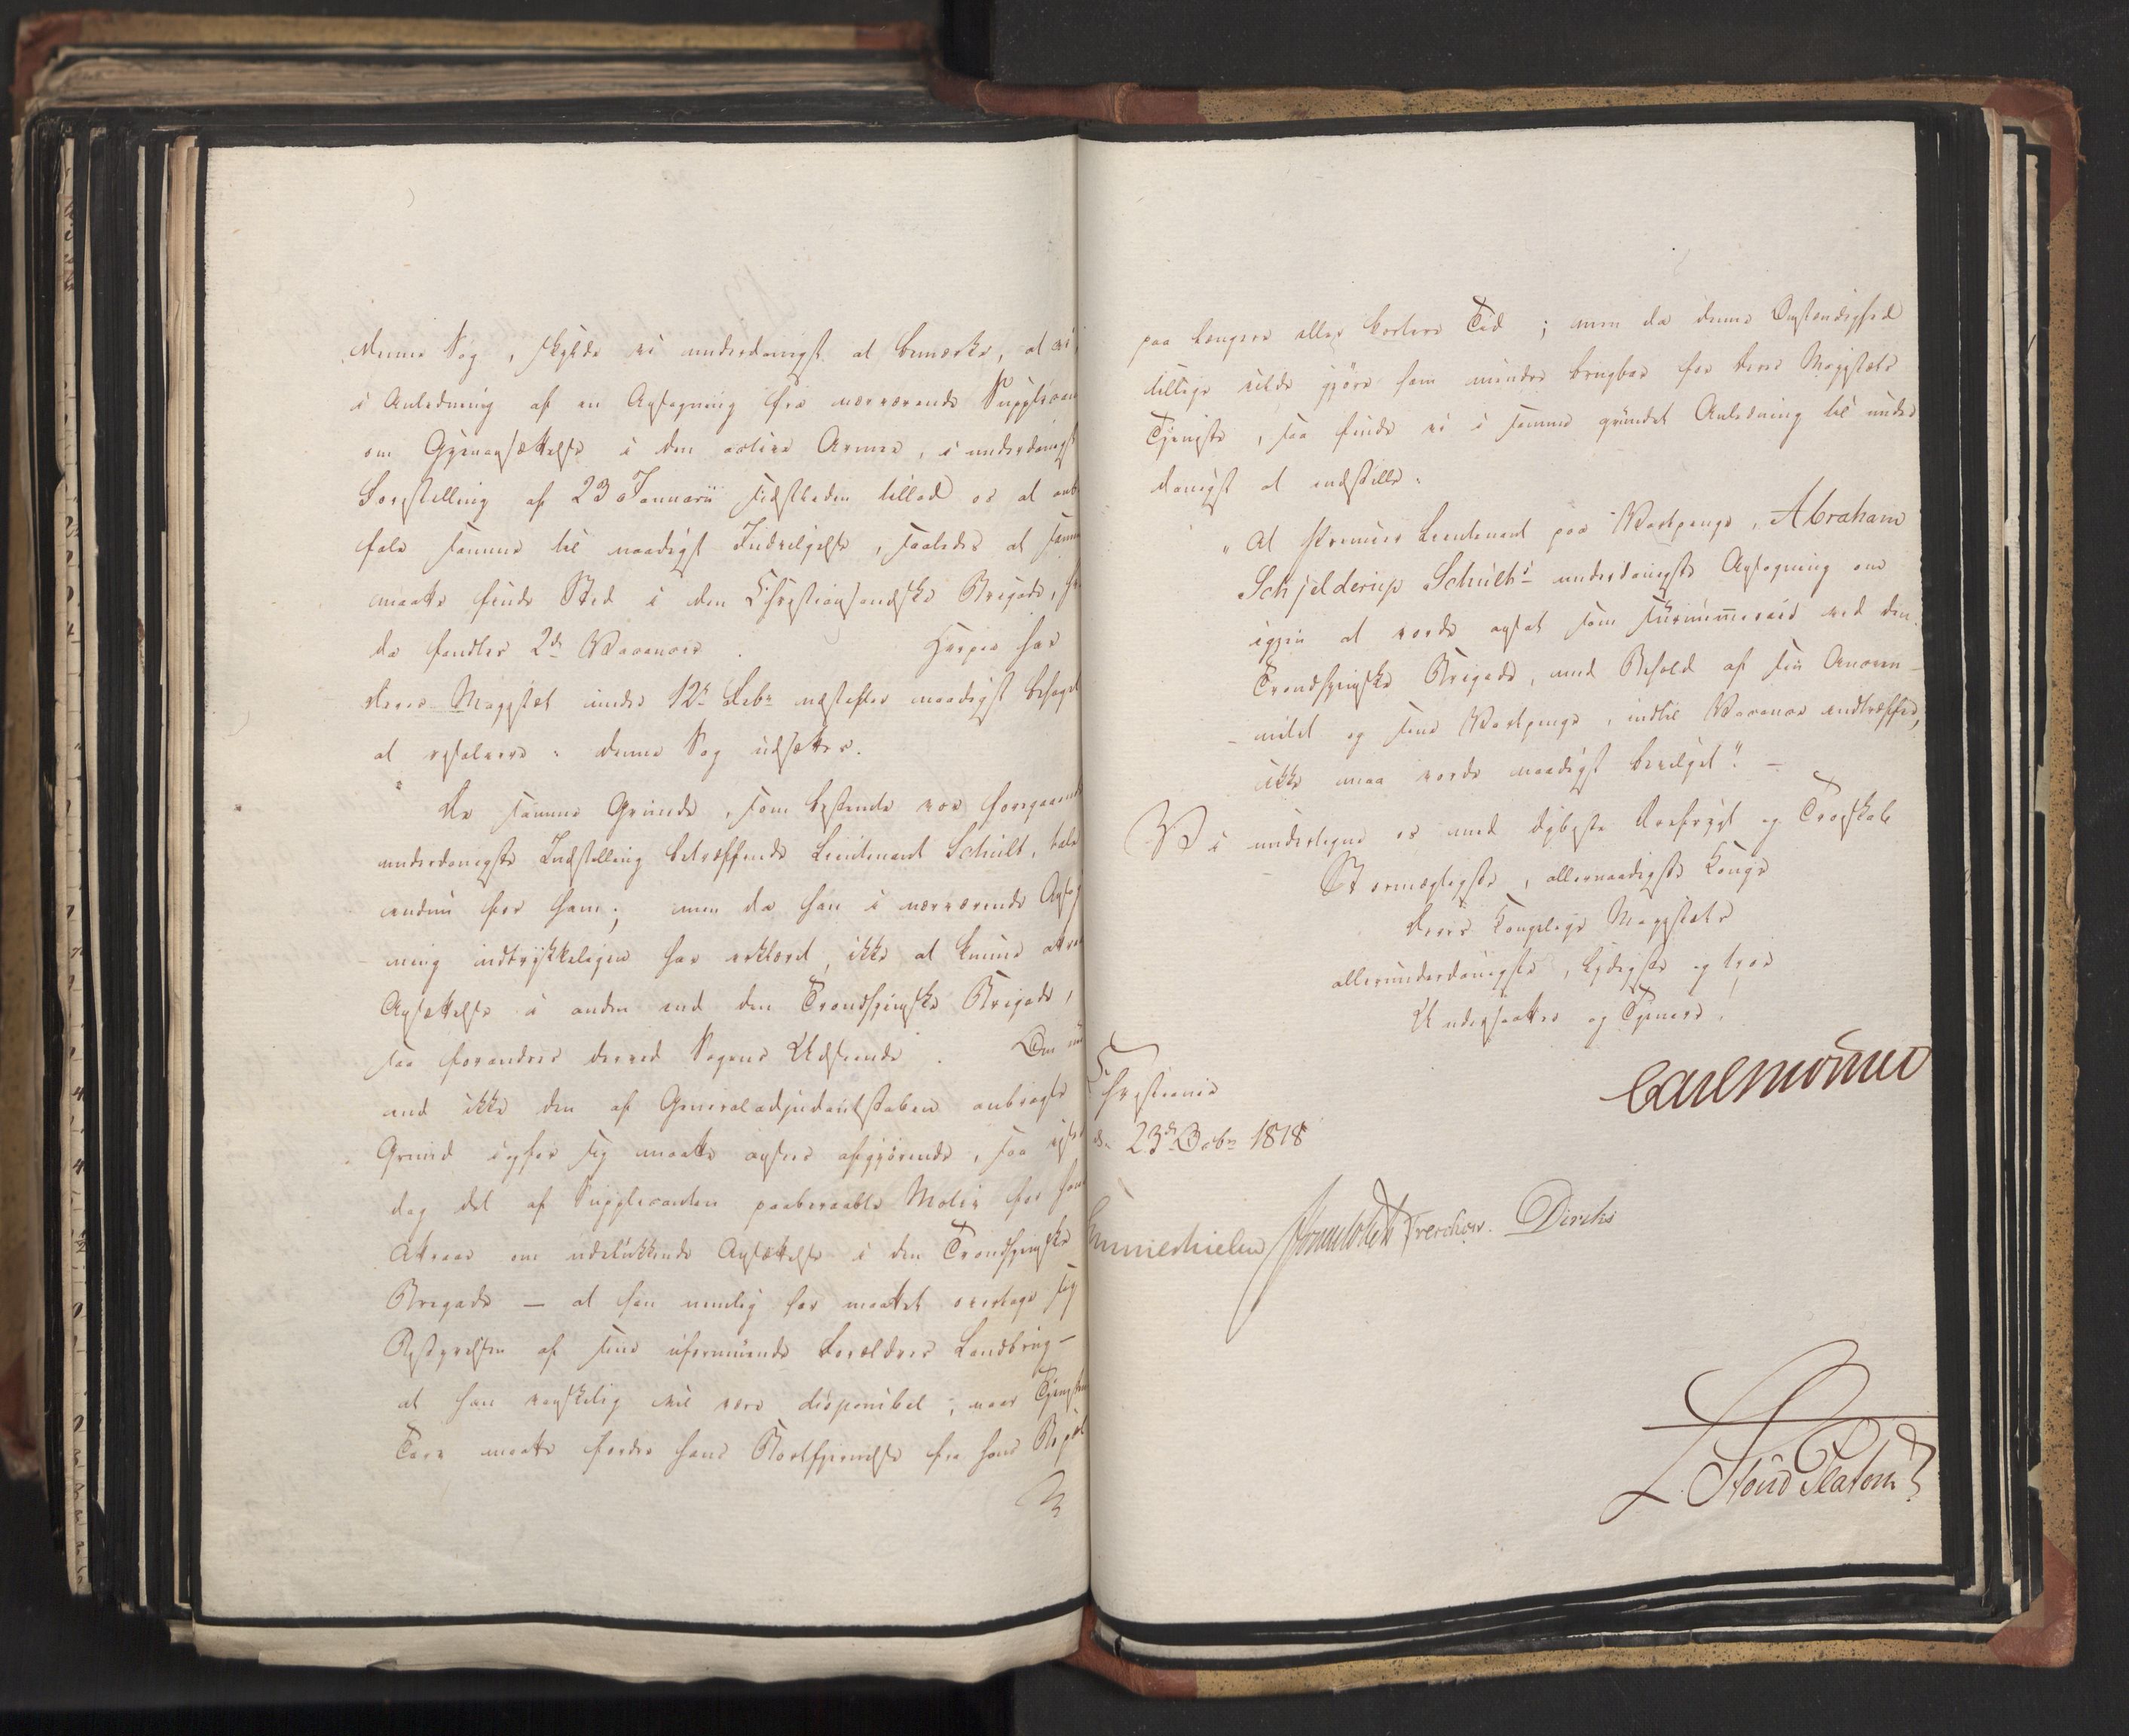 denne Sag, skylde vi underdanigst at bemærke, at vi
i Anledning af en Ansøgning fra nærværende Supplican
om Gjenansættelse i den active Armee, i underdanigst
Forestilling af 23 Januarii sidstleden tillod os at anbe
fale samme til naadigst Indvilgelse, saaledes at samme
maatte finde Sted i den Christiansandske Brigade,
da fandtes 2de Vacancer. Herpaa har
Deres Majestæt under 12te Febr næstefter naadigst behaget
at resolvere: denne Sag udsættes.
De samme Grunde, som bestemte vor foregaaende
underdanigste Indstilling betræffende Lieutenant Schult, tale
endnu for ham; men da han i nærværende Ansøg
ning udtrykkeligen har erklæret, ikke at kunne attraae
Ansættelse i anden end den Trondhjemske Brigade,
saa forandres derved Sagens Udseende. Om
end ikke den af Generaladjudantstaben anbragte
Grund isig maatte ansees afgjørende, saa
dog det af Supplicanten paaberaabte Motiv for hans
Attraae om udelukkende Ansættelse i den Trondhjemske
Brigade — at han nemlig har maattet overtage sig
Bestyrelsen af sine uformuende Forældres Landbrug —
at han vanskelig vil være disponibel, naar Tjenesten
Tarv maatte fordre hans Bortfjernelse fra hans
paa længere eller kortere Tid; men da denne Omstændighed
tillige vilde gjøre ham mindre brugbar for Deres Majestæts
Tjeneste, saa finde vi i samme grundet Anledning til under
danigst at indstille:
"At Premier Lieutenant paa Vartpenge, Abraham
Schjelderup Schults underdanigste Ansøgning om
igjen at vorde ansat som surnumerair ved den
Trondhjemske Brigade, med Behold af sin Ancien-
nitet og sine Vartpenge, indtil Vacance indtræffer,
ikke maa vorde naadigst bevilget". —
Vi undertegne os med dybeste Ærefrygt og Troskab
Stormægtigste, allernaadigste Konge
Deres Kongelige Majestæts
allerunderdanigste, lydigste og troe
Undersaatter og Tjenere,
Carl Mörner
Christiania
d. 23de Octbr 1818
Sommerhielm Treschow. Diriks